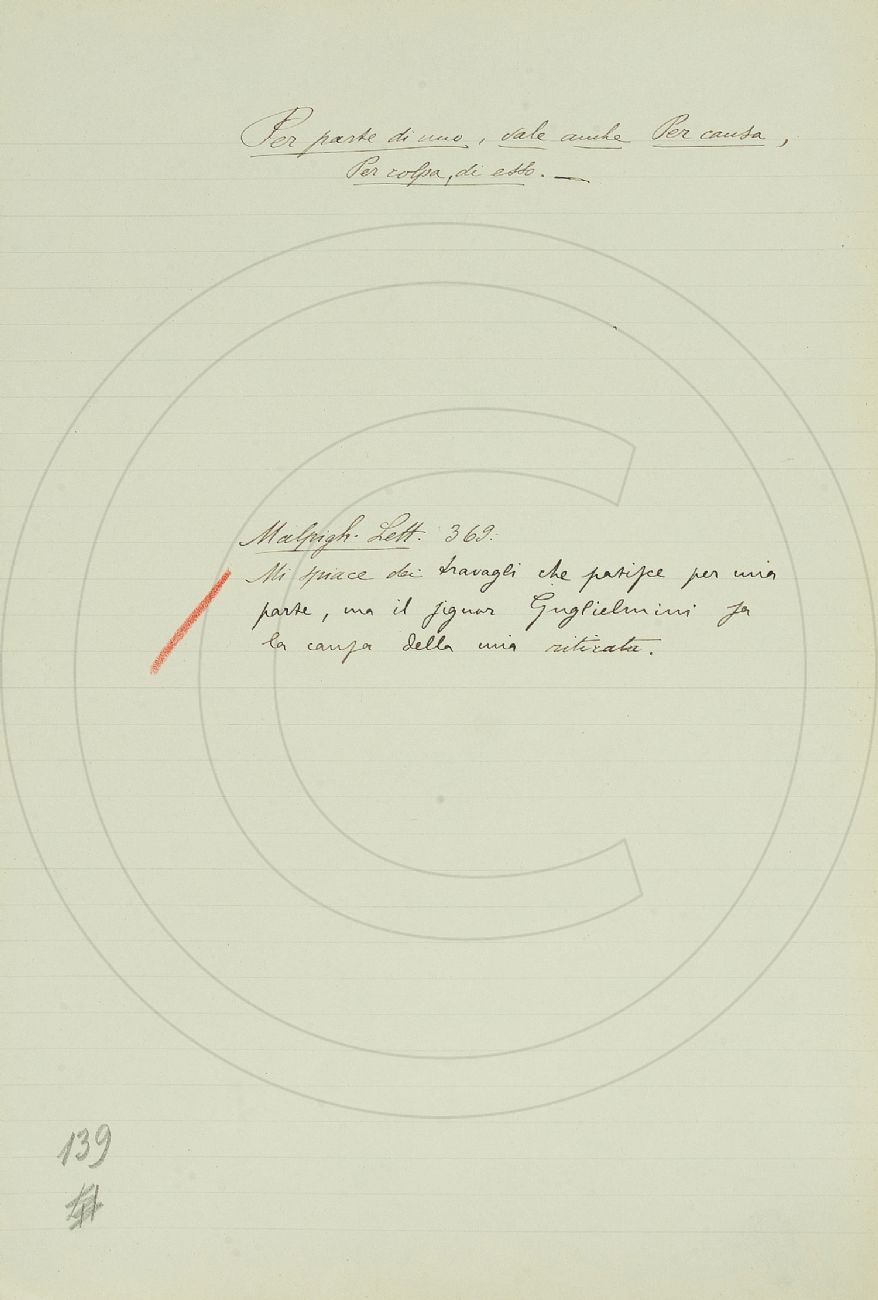 Per parte di uno, vale anche Per causa,
Per colpa, di esso. —
Malpigh. Lett. 369.
Mi spiace dei travagli che patisce per mia
parte, ma il signor Guglielmini sa
la causa della mia ritirata.
139